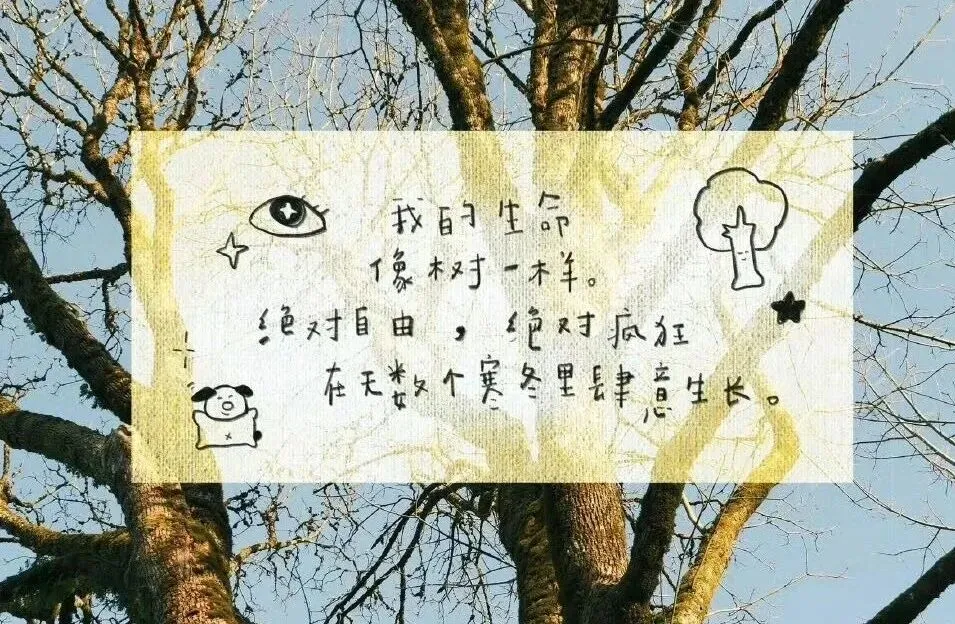 我的生命
像树一样。
绝对自由，绝对疯狂
在无数个寒冬里肆意生长。